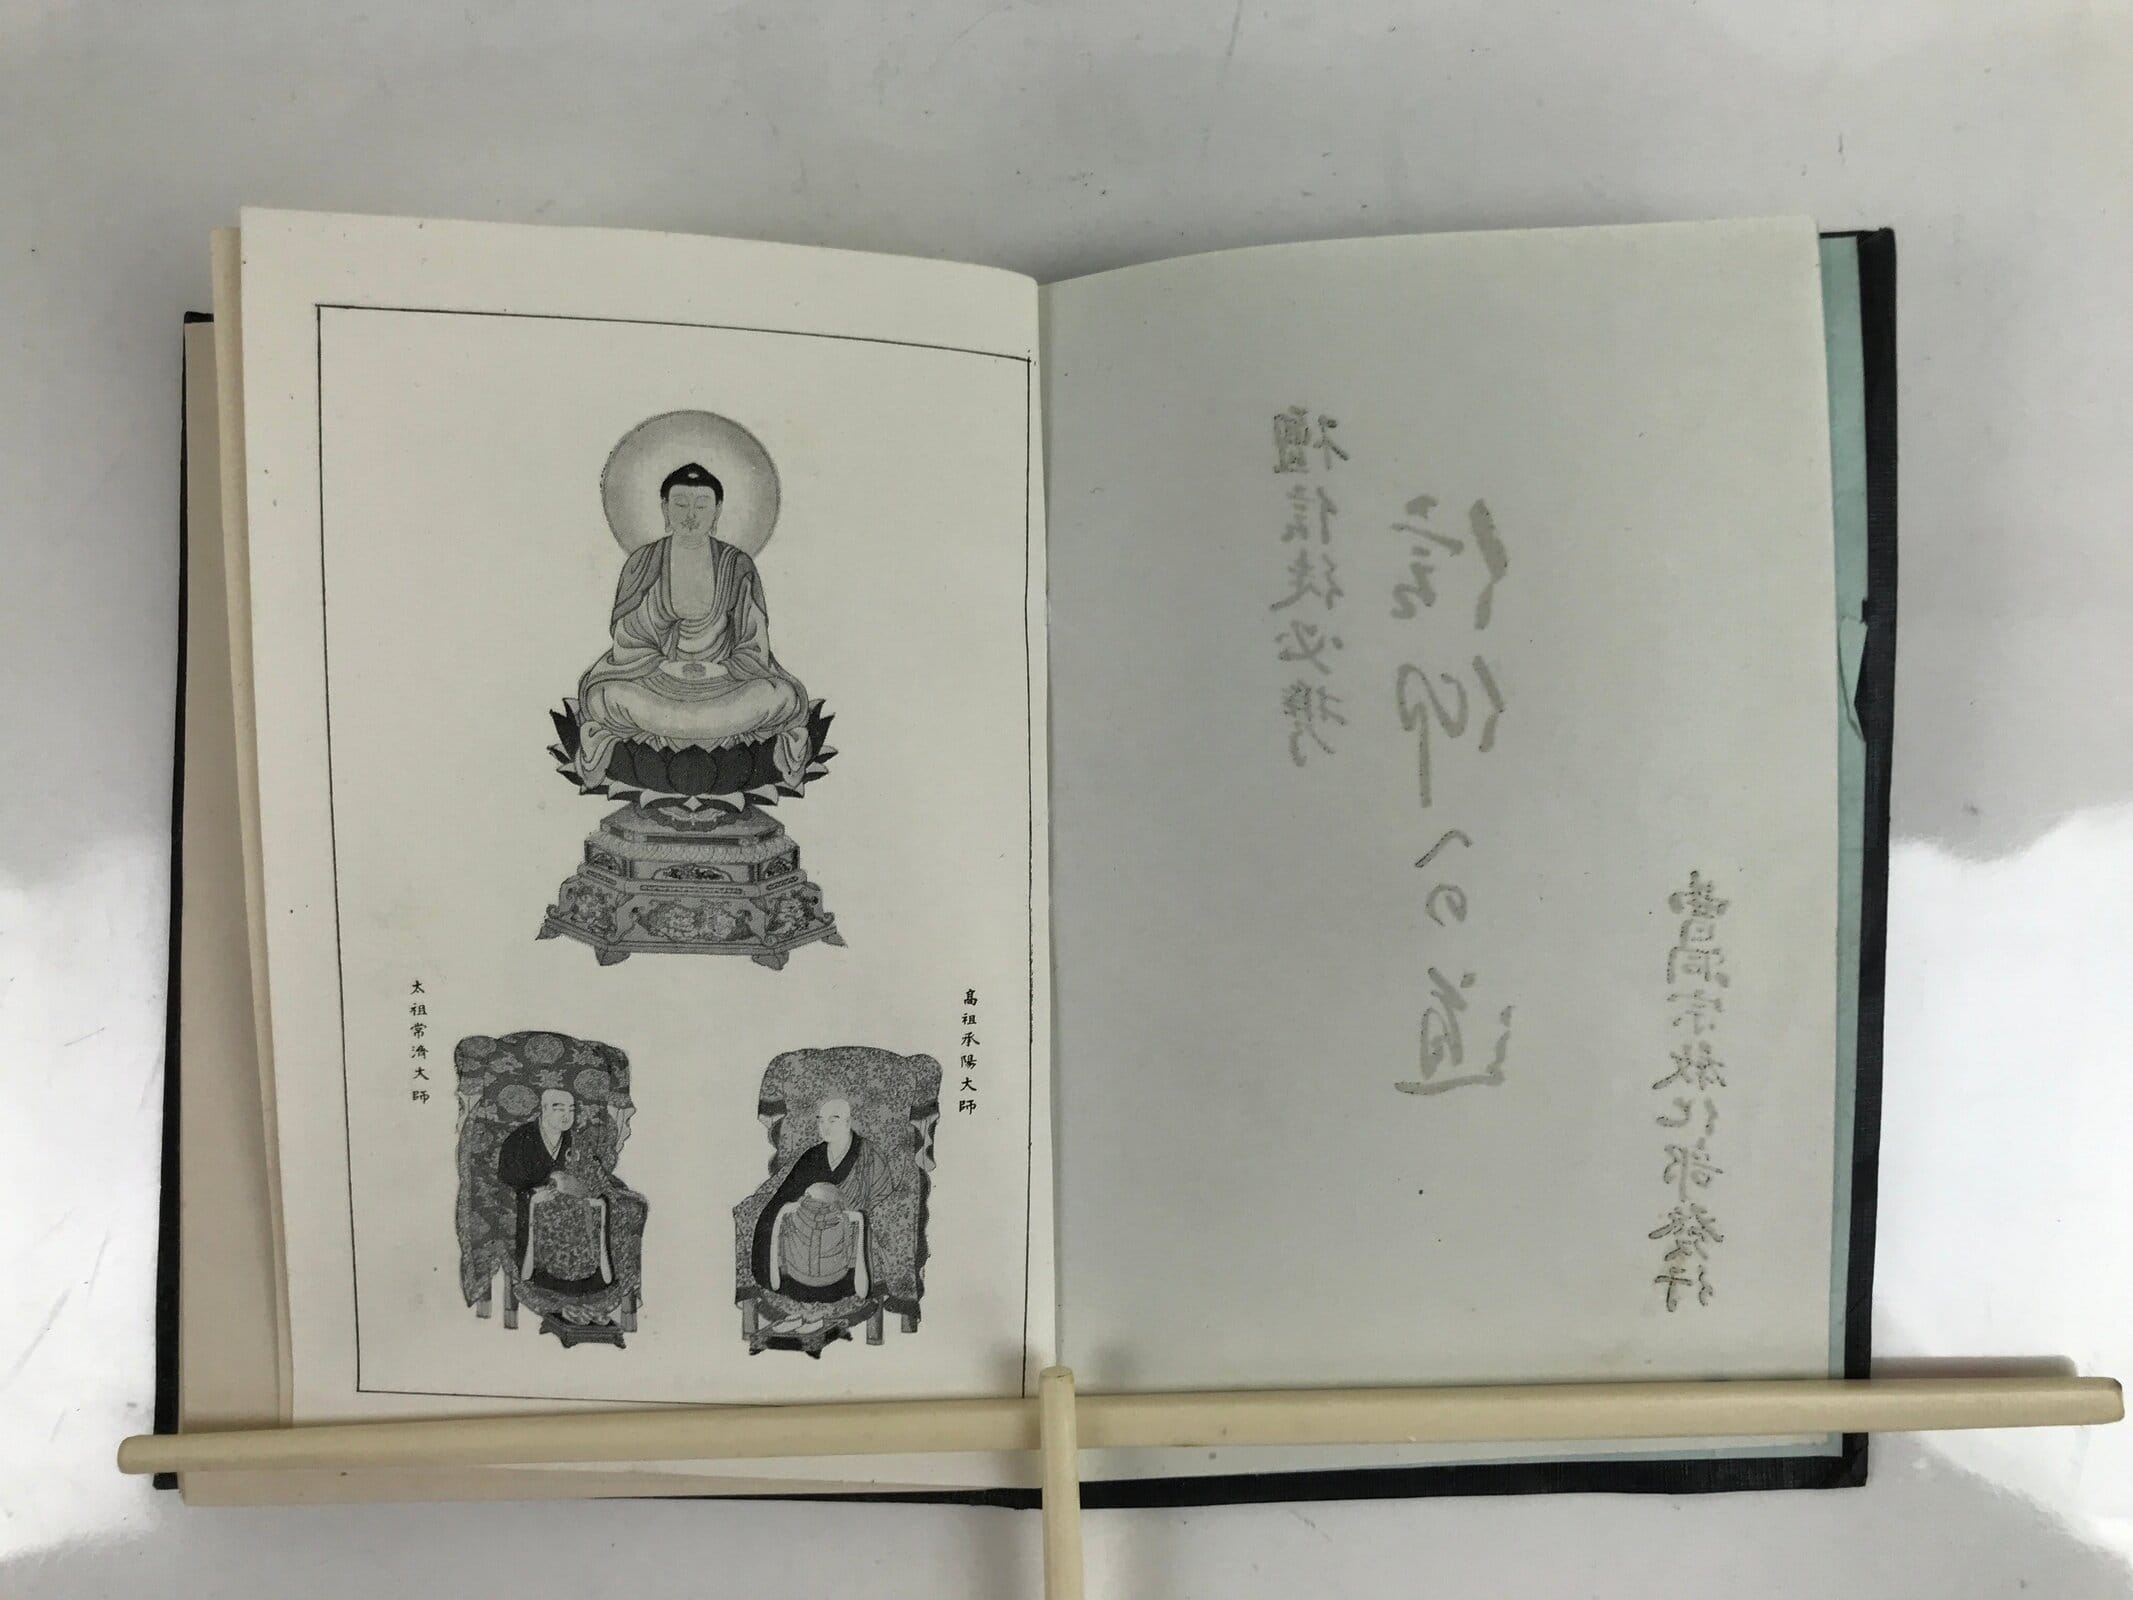 檀信徒必携
信仰への道
曹洞宗教化部發行
高祖承陽大師
太祖常濟大師